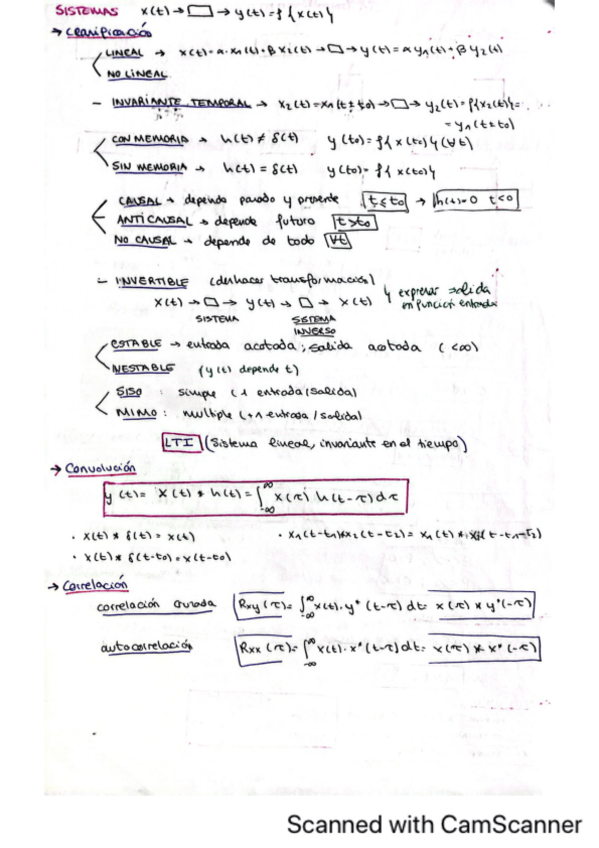 SISTEMAS x(t) → □ → y(t) = f{x(t)}
→ Clasificación
LINEAL → x(t) = α·x1(t) + βx2(t) → □ → y(t) = α y1(t) + β y2(t)
NO LINEAL
- INVARIANTE TEMPORAL → x2(t) = x1(t ± t0) → □ → y2(t) = f{x2(t)} =
= y1(t ± t0)
CON MEMORIA → h(t) ≠ δ(t) y(t0) = f{x(t)} (∀t)
SIN MEMORIA → h(t) = δ(t) y(t0) = f{x(t0)}
CAUSAL → depende pasado y presente t ≤ t0 → h(t) = 0 t < 0
ANTICAUSAL → depende futuro t > t0
NO CAUSAL → depende de todo ∀t
- INVERTIBLE (deshacer transformación)
x(t) → □ → y(t) → □ → x(t) ↳ expresar salida
en función entrada
SISTEMA SISTEMA
INVERSO
ESTABLE → entrada acotada; salida acotada (<∞)
INESTABLE (y(t) depende t)
SISO : simple (1 entrada/salida)
MIMO : multiple (+1 entrada/salida)
LTI (Sistema lineal, invariante en el tiempo)
→ Convolución
y(t) = x(t) * h(t) = ∫_{-∞}^{∞} x(τ) h(t-τ) dτ
· x(t) * δ(t) = x(t) · x1(t-t1) * x2(t-t2) = x1(t) * x2(t-t1-t2)
· x(t) * δ(t-t0) = x(t-t0)
→ Correlación
correlación cruzada Rxy(τ) = ∫_{-∞}^{∞} x(t)·y*(t-τ) dt = x(τ) * y*(-τ)
autocorrelación Rxx(τ) = ∫_{-∞}^{∞} x(t)·x*(t-τ) dt = x(τ) * x*(-τ)
Scanned with CamScanner